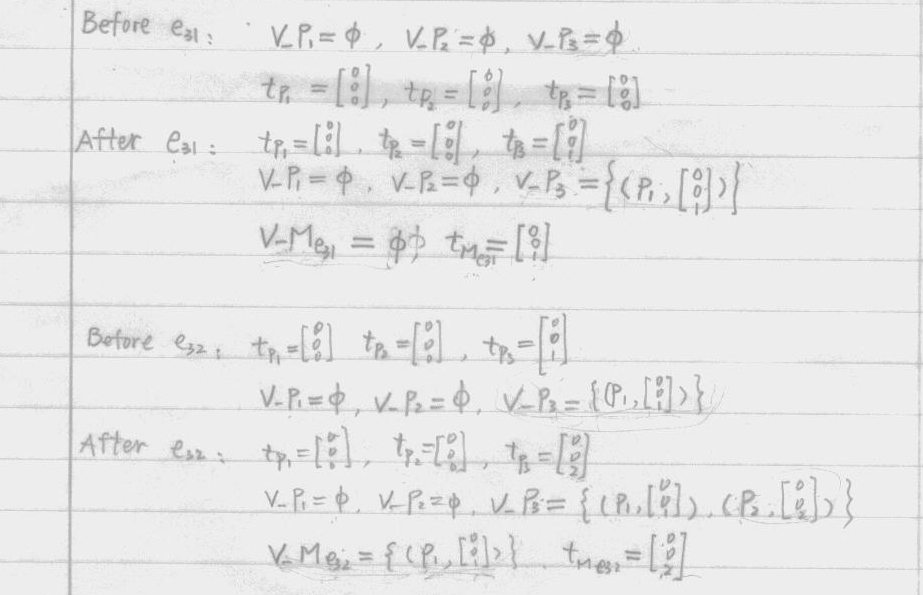 Before e₃₁: V_P₁ = ϕ, V_P₂ = ϕ, V_P₃ = ϕ
t_P₁ = [0 0 0], t_P₂ = [0 0 0], t_P₃ = [0 0 0]
After e₃₁: t_P₁ = [0 0 0], t_P₂ = [0 0 0], t_P₃ = [0 0 1]
V_P₁ = ϕ, V_P₂ = ϕ, V_P₃ = {(P₁, [0 0 1])}
V_M_e₃₁ = ϕ t_M_e₃₁ = [0 0 1]
Before e₃₂: t_P₁ = [0 0 0] t_P₂ = [0 0 0], t_P₃ = [0 0 1]
V_P₁ = ϕ, V_P₂ = ϕ, V_P₃ = {(P₁, [0 0 1])}
After e₃₂: t_P₁ = [0 0 0], t_P₂ = [0 0 0], t_P₃ = [0 0 2]
V_P₁ = ϕ, V_P₂ = ϕ, V_P₃ = {(P₁, [0 0 1]), (P₂, [0 0 2])}
V_M_e₃₂ = {(P₁, [0 0 1])} t_M_e₃₂ = [0 0 2]